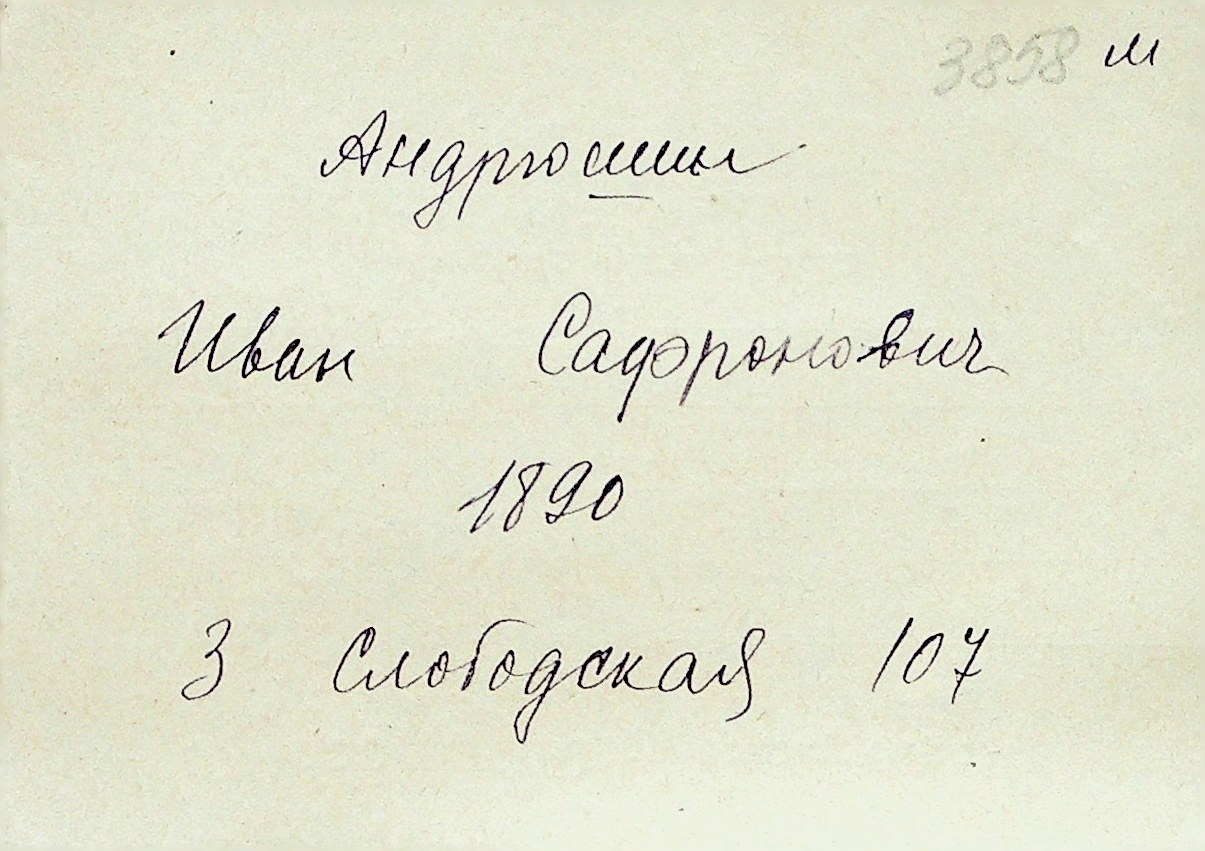 3858 м
Андрюшин
Иван Сафронович
1890
3 Слободская 107